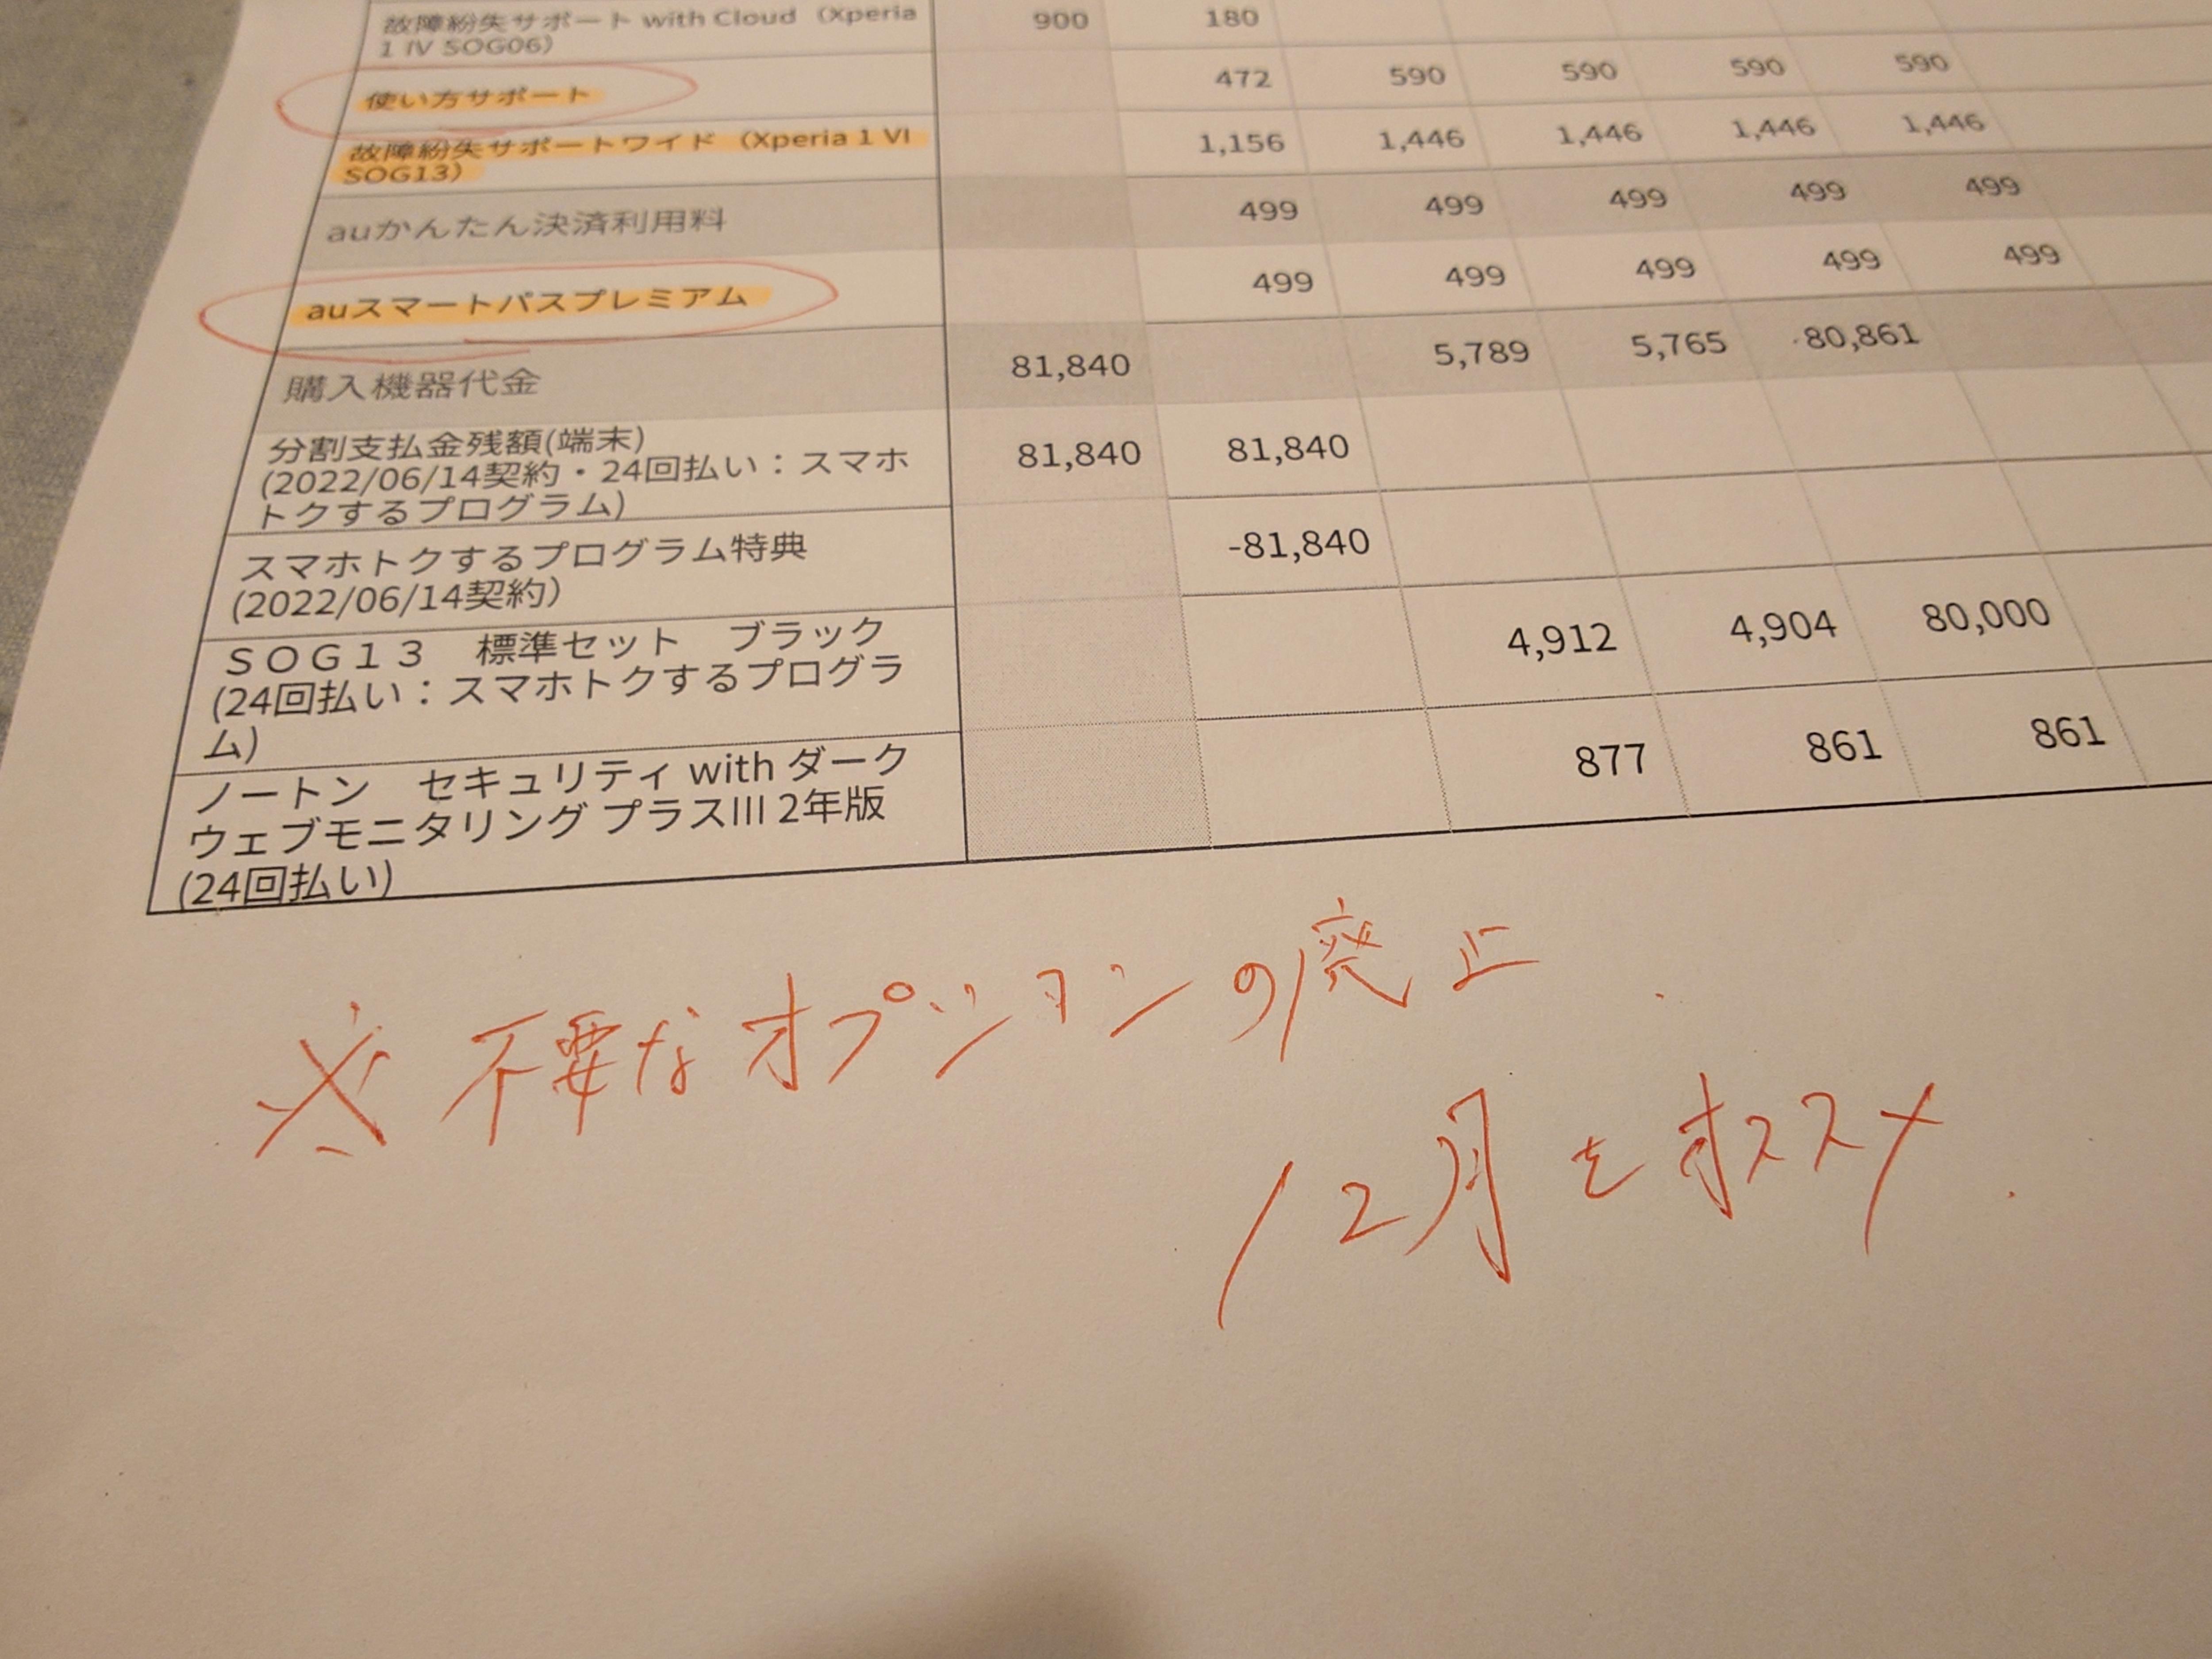 故障紛失サポート with Cloud（Xperia 900 180
1 IV SOG06）
使い方サポート 472 590 590 590 590
故障紛失サポートワイド（Xperia 1 VI 1,156 1,446 1,446 1,446 1,446
SOG13）
auかんたん決済利用料 499 499 499 499 499
auスマートパスプレミアム 499 499 499 499 499
購入機器代金 81,840 5,789 5,765 80,861
分割支払金残額(端末) 81,840 81,840
(2022/06/14契約・24回払い：スマホ
トクするプログラム)
スマホトクするプログラム特典 -81,840
(2022/06/14契約）
ＳＯＧ１３　標準セット　ブラック 4,912 4,904 80,000
(24回払い：スマホトクするプログラ
ム)
ノートン　セキュリティ with ダーク 877 861 861
ウェブモニタリング プラスIII 2年版
(24回払い)
※ 不要なオプションの廃止
12月をオススメ